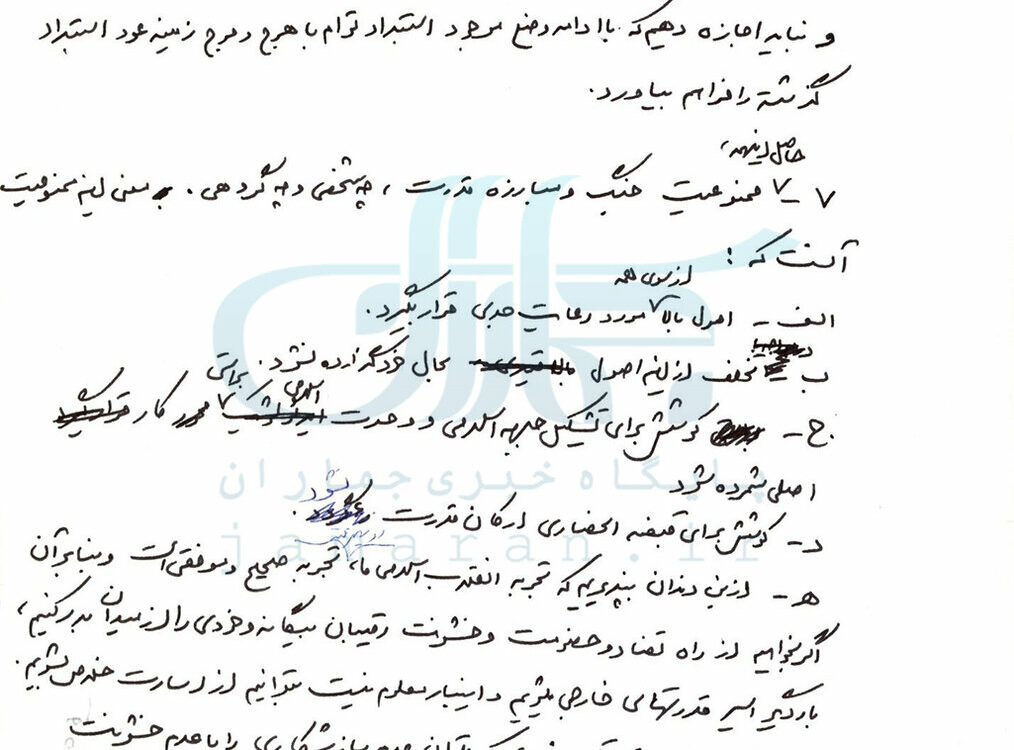 و نباید اجازه دهیم که با ادامه وضع موجود استبداد توأم با هرج و مرج زمینه عود استبداد
گذشته را فراهم بیاورد.
حاصل اینهمه،
۷ - ممنوعیت جنگ و مبارزه قدرت، چه شخصی و چه گروهی. معنی این ممنوعیت
آنست که:
از سوی همه
الف - اصول بالا مورد رعایت جدی قرار بگیرد.
ب - تخلف از این اصول بحال خود گزارده نشود.
ج - کوشش برای تشکیل جبهه اسلامی و وحدت اسلامی بجای کار
اصلی شمرده شود
د - کوشش برای قبضه انحصاری ارکان قدرت نشود.
ه - از بن دندان بپذیریم که تجربه انقلاب اسلامی ما، تجربه صحیح و موفقی است و بنابر آن
اگر بخواهیم از راه تضاد و خصومت و خشونت رقیبان بیگانه و خودی را از میدان بدر کنیم،
بار دیگر اسیر قدرتهای خارجی میشویم و اینبار معلوم نیست بتوانیم از اسارت خلاص بشویم.
را با عدم خشونت
پایگاه خبری جماران
jamaran.ir